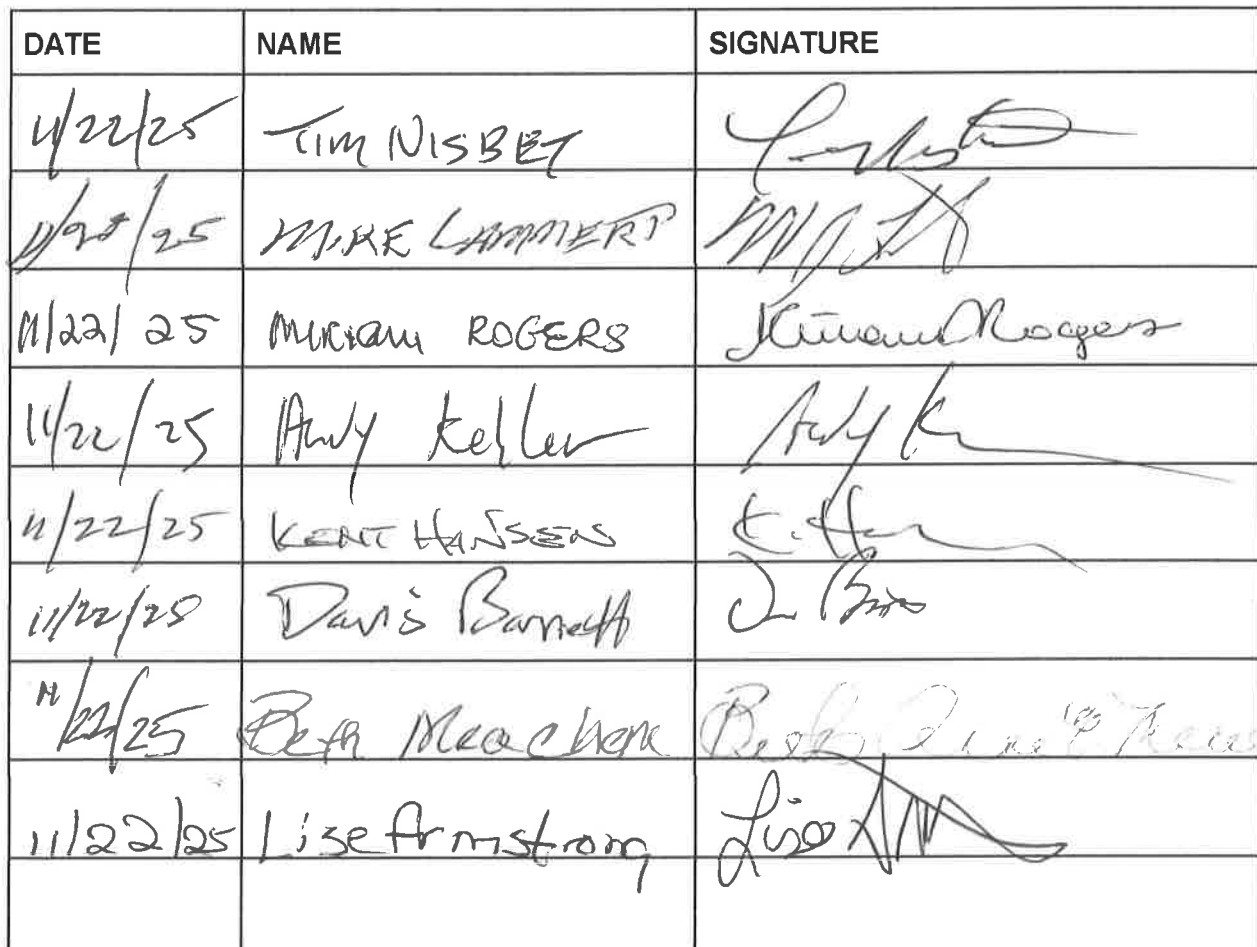 DATE NAME SIGNATURE
11/22/25 TIM NISBET
MIKE LAMMERT
11/22/25 MIRIAM ROGERS Miriam Rogers
11/22/25 Andy Keller Andy K
11/22/25 KENT HANSEN K. Han
11/22/25 Davis Barnett
11/22/25 Beth Meacham Beth
11/22/25 Lise Armstrong Lise